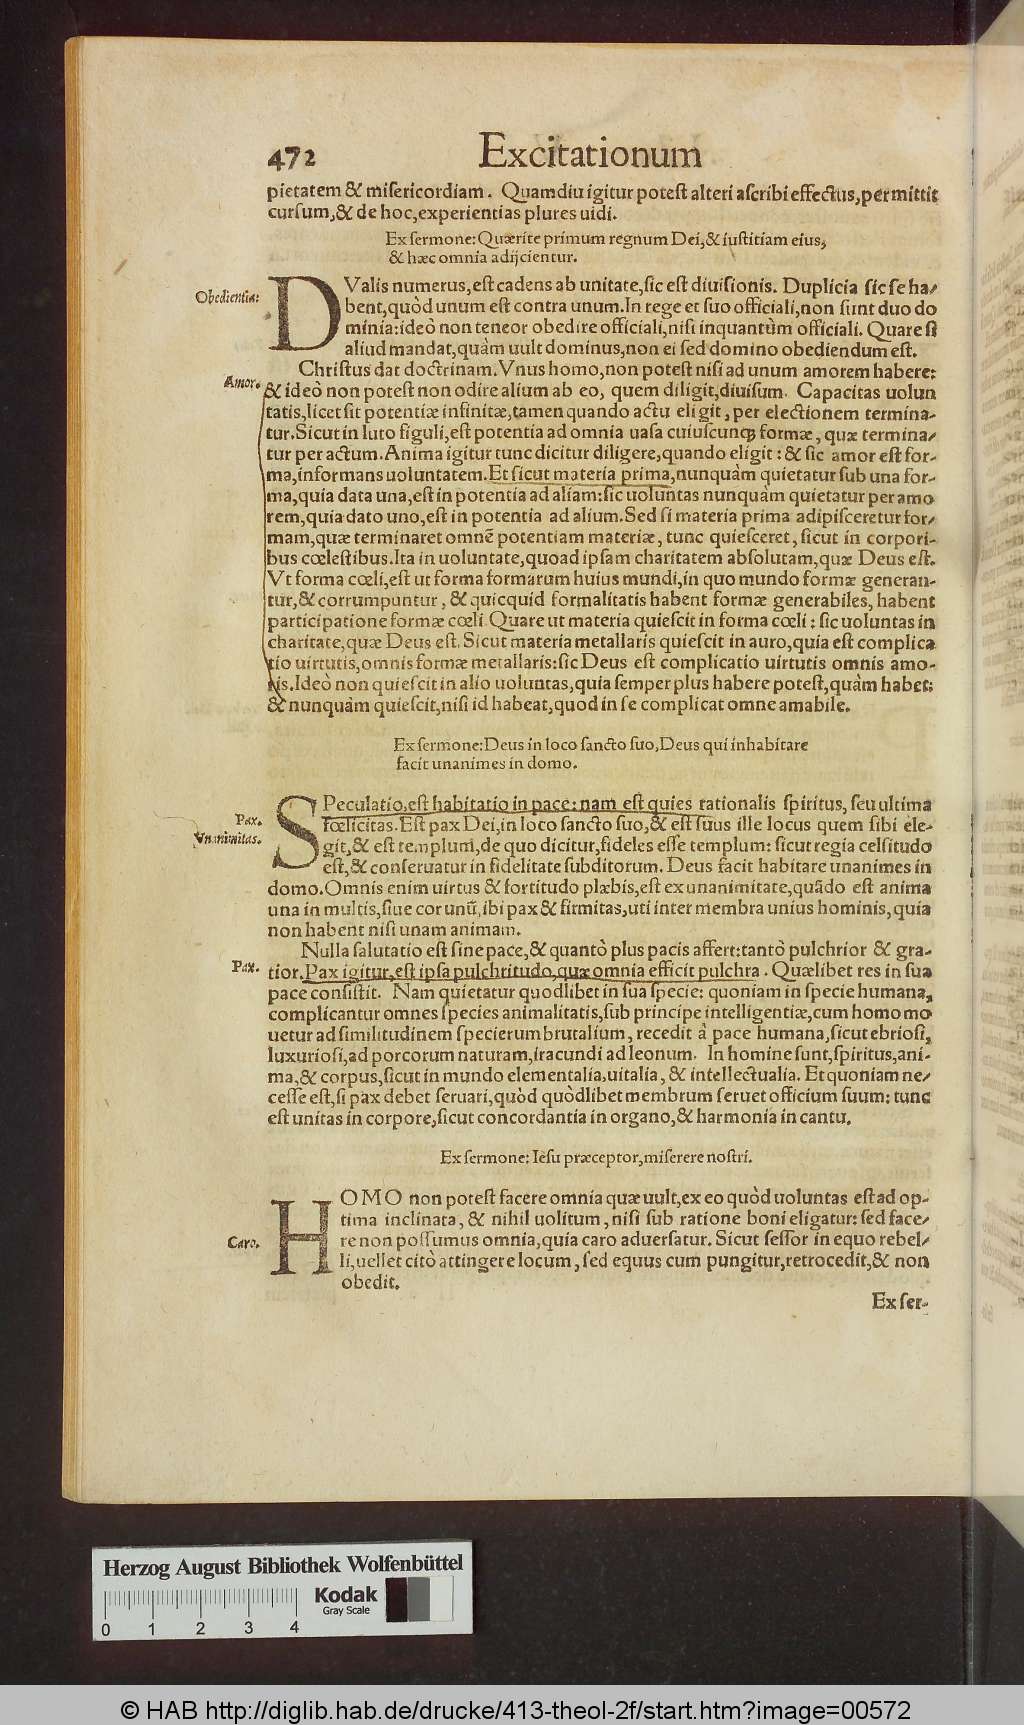 472 Excitationum
pietatem & misericordiam. Quamdiu igitur potest alteri ascribi effectus, permittit
cursum, & de hoc, experientias plures uidi.
Ex sermone: Quærite primum regnum Dei, & iustitiam eius,
& hæc omnia adijcientur.
Obedientia:
DValis numerus, est cadens ab unitate, sic est diuisionis. Duplicia sic se ha/
bent, quòd unum est contra unum. In rege et suo officiali, non sunt duo do
minia: ideò non teneor obedire officiali, nisi inquantùm officiali. Quare si
aliud mandat, quàm uult dominus, non ei sed domino obediendum est.
Christus dat doctrinam. Vnus homo, non potest nisi ad unum amorem habere:
Amor.
& ideò non potest non odire alium ab eo, quem diligit, diuisum. Capacitas uolun
tatis, licet sit potentiæ infinitæ, tamen quando actu eligit, per electionem termina-
tur. Sicut in luto figuli, est potentia ad omnia uasa cuiuscunq; formæ, quæ termina/
tur per actum. Anima igitur tunc dicitur diligere, quando eligit: & sic amor est for-
ma, informans uoluntatem. Et sicut materia prima, nunquàm quietatur sub una for-
ma, quia data una, est in potentia ad aliam: sic uoluntas nunquàm quietatur per amo
rem, quia dato uno, est in potentia ad alium. Sed si materia prima adipisceretur for/
mam, quæ terminaret omnẽ potentiam materiæ, tunc quiesceret, sicut in corpori-
bus cœlestibus. Ita in uoluntate, quoad ipsam charitatem absolutam, quæ Deus est.
Vt forma cœli, est ut forma formarum huius mundi, in quo mundo formæ generan-
tur, & corrumpuntur, & quicquid formalitatis habent formæ generabiles, habent
participatione formæ cœli. Quare ut materia quiescit in forma cœli: sic uoluntas in
charitate, quæ Deus est. Sicut materia metallaris quiescit in auro, quia est complica
tio uirtutis, omnis formæ metallaris: sic Deus est complicatio uirtutis omnis amo-
ris. Ideò non quiescit in alio uoluntas, quia semper plus habere potest, quàm habet:
& nunquàm quiescit, nisi id habeat, quod in se complicat omne amabile.
Ex sermone: Deus in loco sancto suo, Deus qui inhabitare
facit unanimes in domo.
SPeculatio, est habitatio in pace: nam est quies rationalis spiritus, seu ultima
Pax.
fœlicitas. Est pax Dei, in loco sancto suo, & est suus ille locus quem sibi ele-
Vnanimitas.
git, & est templum, de quo dicitur, fideles esse templum: sicut regia celsitudo
est, & conseruatur in fidelitate subditorum. Deus facit habitare unanimes in
domo. Omnis enim uirtus & fortitudo plæbis, est ex unanimitate, quãdo est anima
una in multis, siue cor unũ, ibi pax & firmitas, uti inter membra unius hominis, quia
non habent nisi unam animam.
Nulla salutatio est sine pace, & quantò plus pacis affert: tantò pulchrior & gra-
Pax.
tior. Pax igitur, est ipsa pulchritudo, quæ omnia efficit pulchra. Quælibet res in sua
pace consistit. Nam quietatur quodlibet in sua specie: quoniam in specie humana,
complicantur omnes species animalitatis, sub principe intelligentiæ, cum homo mo
uetur ad similitudinem specierum brutalium, recedit à pace humana, sicut ebriosi,
luxuriosi, ad porcorum naturam, iracundi ad leonum. In homine sunt, spiritus, ani-
ma, & corpus, sicut in mundo elementalia, uitalia, & intellectualia. Et quoniam ne/
cesse est, si pax debet seruari, quòd quòdlibet membrum seruet officium suum: tunc
est unitas in corpore, sicut concordantia in organo, & harmonia in cantu.
Ex sermone: Iesu præceptor, miserere nostri.
HOMO non potest facere omnia quæ uult, ex eo quòd uoluntas est ad op-
tima inclinata, & nihil uolitum, nisi sub ratione boni eligatur: sed face/
Caro.
re non possumus omnia, quia caro aduersatur. Sicut sessor in equo rebel-
li, uellet citò attingere locum, sed equus cum pungitur, retrocedit, & non
obedit.
Ex ser-
Herzog August Bibliothek Wolfenbüttel
Kodak
Gray Scale
0 1 2 3 4
© HAB http://diglib.hab.de/drucke/413-theol-2f/start.htm?image=00572